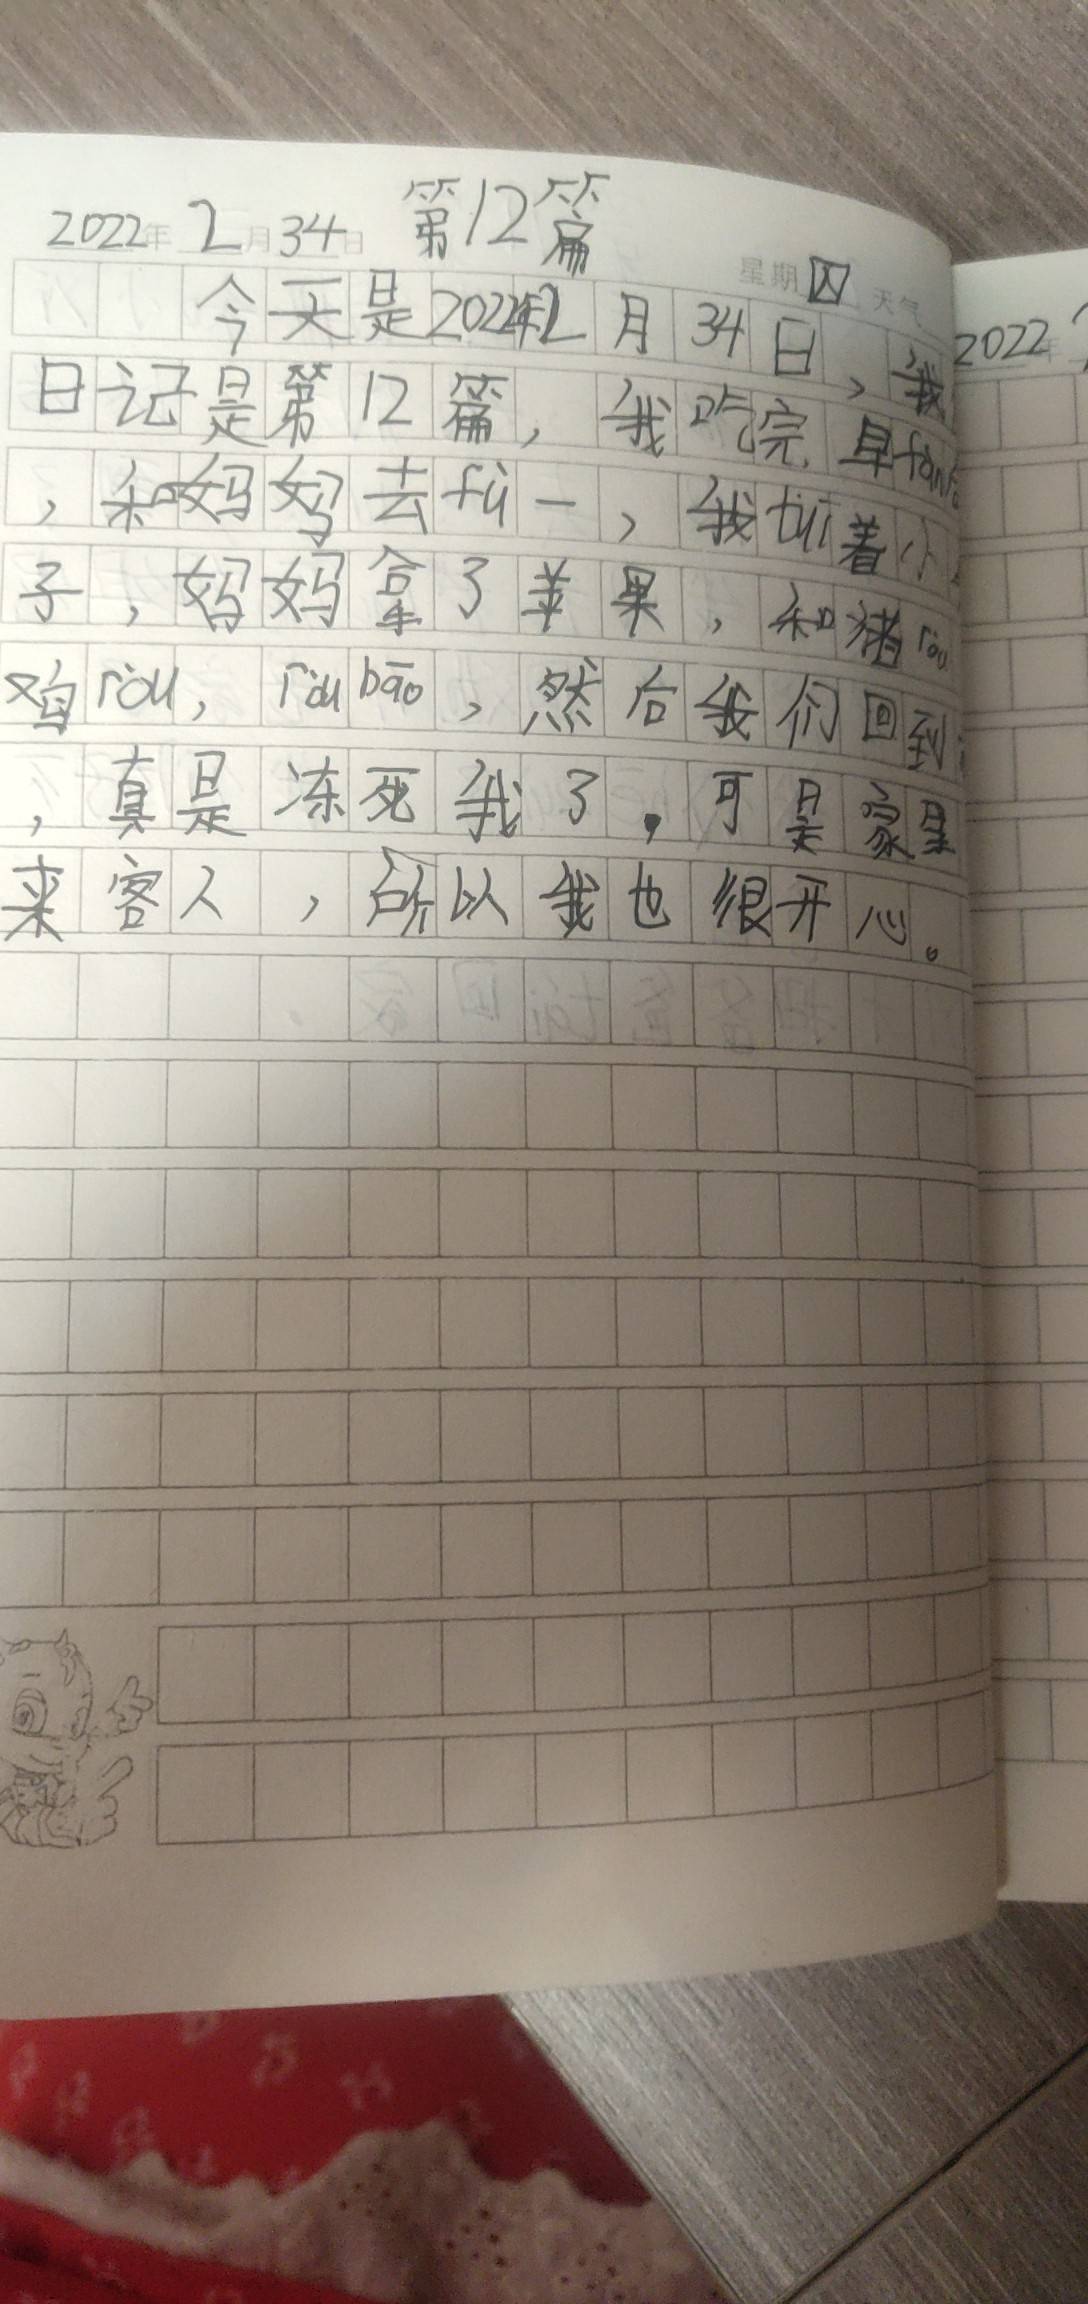 第12篇
2022年 2月34日 星期四 天气
今天是2022年2月34日,我
日记是第12篇,我吃完早fàn
,和妈妈去fù一,我tuī着小
子,妈妈拿了苹果,和猪ròu
鸡ròu,ròu bāo,然后我们回到
,真是冻死我了。可是家里
来客人,所以我也很开心。
2022年